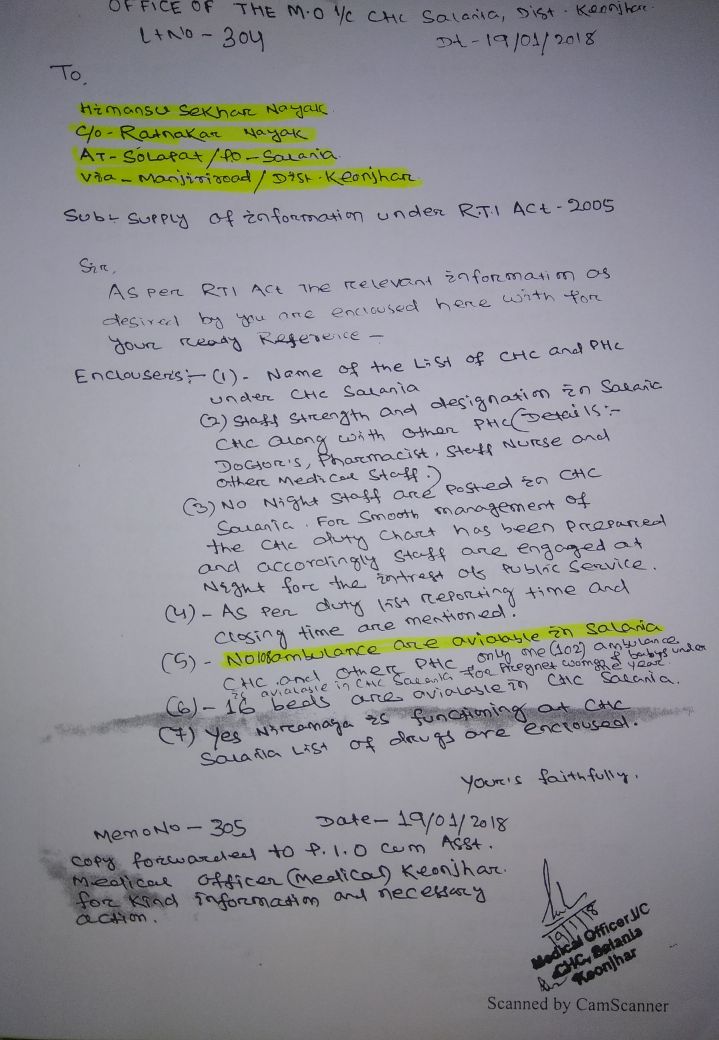 OFFICE OF THE M.O I/C CHC Salania, Dist. Keonjhar.
Lt No - 304 Dt - 19/01/2018
To,
Himansu Sekhar Nayak.
C/o - Ratnakar Nayak
AT - Solapat / Po - Salania.
Via - Manjiriroad / Dist. Keonjhar.
Sub:- Supply of information under R.T.I Act - 2005
Sir,
As per RTI Act The relevant information as
desired by you are encloused here with for
your ready Reference -
Enclousers:- (1) - Name of the List of CHC and PHC
under CHC Salania
(2) Staff strength and designation in Salania
CHC along with other PHC (Details:-
Doctor's, Pharmacist, Staff Nurse and
Other Medical Staff.)
(3) No Night Staff are Posted in CHC
Salania. For Smooth management of
the CHC duty chart has been prepared
and accordingly staff are engaged at
Night for the intrest of Public Service.
(4) - As per duty list reporting time and
closing time are mentioned.
(5) - No 108 ambulance are avialable in Salania
CHC and other PHC only one (102) ambulance
is avialable in CHC Salania for Pregnet woman & babys under one year.
(6) - 16 beds are avialable in CHC Salania.
(7) Yes Niramaya is functioning at CHC
Salania List of drugs are encloused.
Your's faithfully,
Memo No - 305 Date - 19/01/2018
Copy forwarded to P.I.O cum Asst.
Medical officer (Medical) Keonjhar.
for kind information and necessary
action.
19/1/18
Medical Officer I/C
CHC, Salania
Keonjhar
Scanned by CamScanner